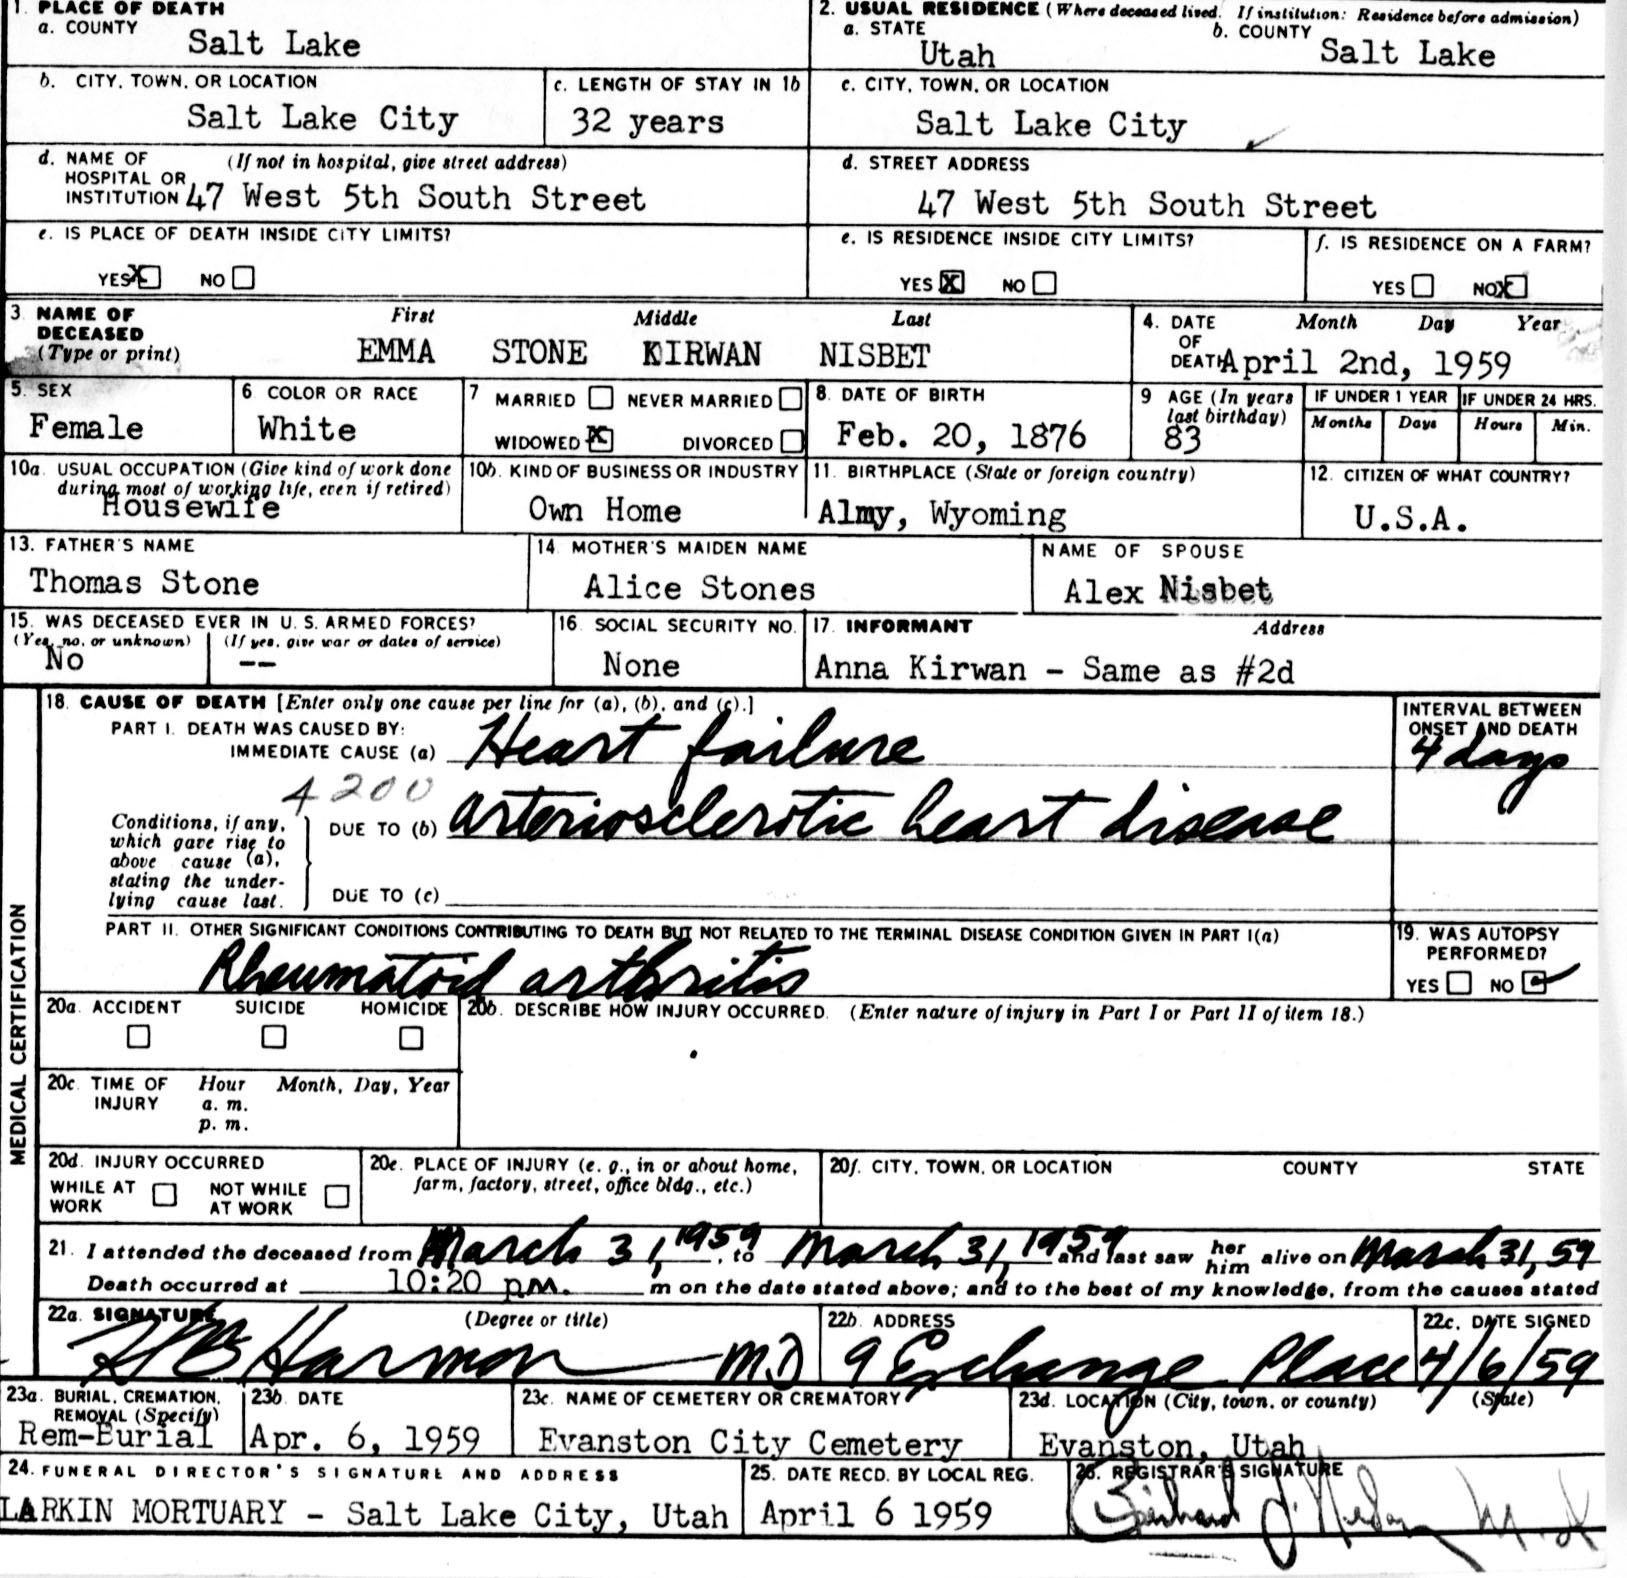 1. PLACE OF DEATH
a. COUNTY Salt Lake
2. USUAL RESIDENCE (Where deceased lived. If institution: Residence before admission)
a. STATE Utah b. COUNTY Salt Lake
b. CITY, TOWN, OR LOCATION Salt Lake City
c. LENGTH OF STAY IN 1b 32 years
c. CITY, TOWN, OR LOCATION Salt Lake City
d. NAME OF HOSPITAL OR INSTITUTION (If not in hospital, give street address) 47 West 5th South Street
d. STREET ADDRESS 47 West 5th South Street
e. IS PLACE OF DEATH INSIDE CITY LIMITS?
YES X NO
e. IS RESIDENCE INSIDE CITY LIMITS?
YES X NO
f. IS RESIDENCE ON A FARM?
YES NO X
3. NAME OF DECEASED (Type or print) First Middle Last
EMMA STONE KIRWAN NISBET
4. DATE OF DEATH Month Day Year
April 2nd, 1959
5. SEX Female
6. COLOR OR RACE White
7 MARRIED NEVER MARRIED
WIDOWED X DIVORCED
8. DATE OF BIRTH Feb. 20, 1876
9 AGE (In years last birthday) 83
IF UNDER 1 YEAR Months Days
IF UNDER 24 HRS. Hours Min.
10a. USUAL OCCUPATION (Give kind of work done during most of working life, even if retired) Housewife
10b. KIND OF BUSINESS OR INDUSTRY Own Home
11. BIRTHPLACE (State or foreign country) Almy, Wyoming
12. CITIZEN OF WHAT COUNTRY? U.S.A.
13. FATHER'S NAME Thomas Stone
14. MOTHER'S MAIDEN NAME Alice Stones
NAME OF SPOUSE Alex Nisbet
15. WAS DECEASED EVER IN U. S. ARMED FORCES?
(Yes, no, or unknown) No (If yes, give war or dates of service) --
16. SOCIAL SECURITY NO. None
17. INFORMANT Address
Anna Kirwan - Same as #2d
MEDICAL CERTIFICATION
18. CAUSE OF DEATH [Enter only one cause per line for (a), (b), and (c).]
PART I. DEATH WAS CAUSED BY:
IMMEDIATE CAUSE (a) Heart failure
INTERVAL BETWEEN ONSET AND DEATH 4 days
4200
Conditions, if any, which gave rise to above cause (a), stating the underlying cause last.
DUE TO (b) arteriosclerotic heart disease
DUE TO (c)
PART II. OTHER SIGNIFICANT CONDITIONS CONTRIBUTING TO DEATH BUT NOT RELATED TO THE TERMINAL DISEASE CONDITION GIVEN IN PART I(a)
Rheumatoid arthritis
19. WAS AUTOPSY PERFORMED?
YES NO
20a. ACCIDENT SUICIDE HOMICIDE
20b. DESCRIBE HOW INJURY OCCURRED. (Enter nature of injury in Part I or Part II of item 18.)
20c. TIME OF INJURY Hour a. m. p. m. Month, Day, Year
20d. INJURY OCCURRED
WHILE AT WORK NOT WHILE AT WORK
20e. PLACE OF INJURY (e. g., in or about home, farm, factory, street, office bldg., etc.)
20f. CITY, TOWN, OR LOCATION COUNTY STATE
21. I attended the deceased from March 31, 1959, to March 31, 1959 and last saw her him alive on March 31, 59
Death occurred at 10:20 p.m. m on the date stated above; and to the best of my knowledge, from the causes stated
22a. SIGNATURE (Degree or title)
Harmon M.D
22b. ADDRESS 9 Exchange Place
22c. DATE SIGNED 4/6/59
23a. BURIAL, CREMATION, REMOVAL (Specify) Rem-Burial
23b. DATE Apr. 6, 1959
23c. NAME OF CEMETERY OR CREMATORY Evanston City Cemetery
23d. LOCATION (City, town, or county) (State)
Evanston, Utah
24. FUNERAL DIRECTOR'S SIGNATURE AND ADDRESS
LARKIN MORTUARY - Salt Lake City, Utah
25. DATE RECD. BY LOCAL REG. April 6 1959
26. REGISTRAR'S SIGNATURE